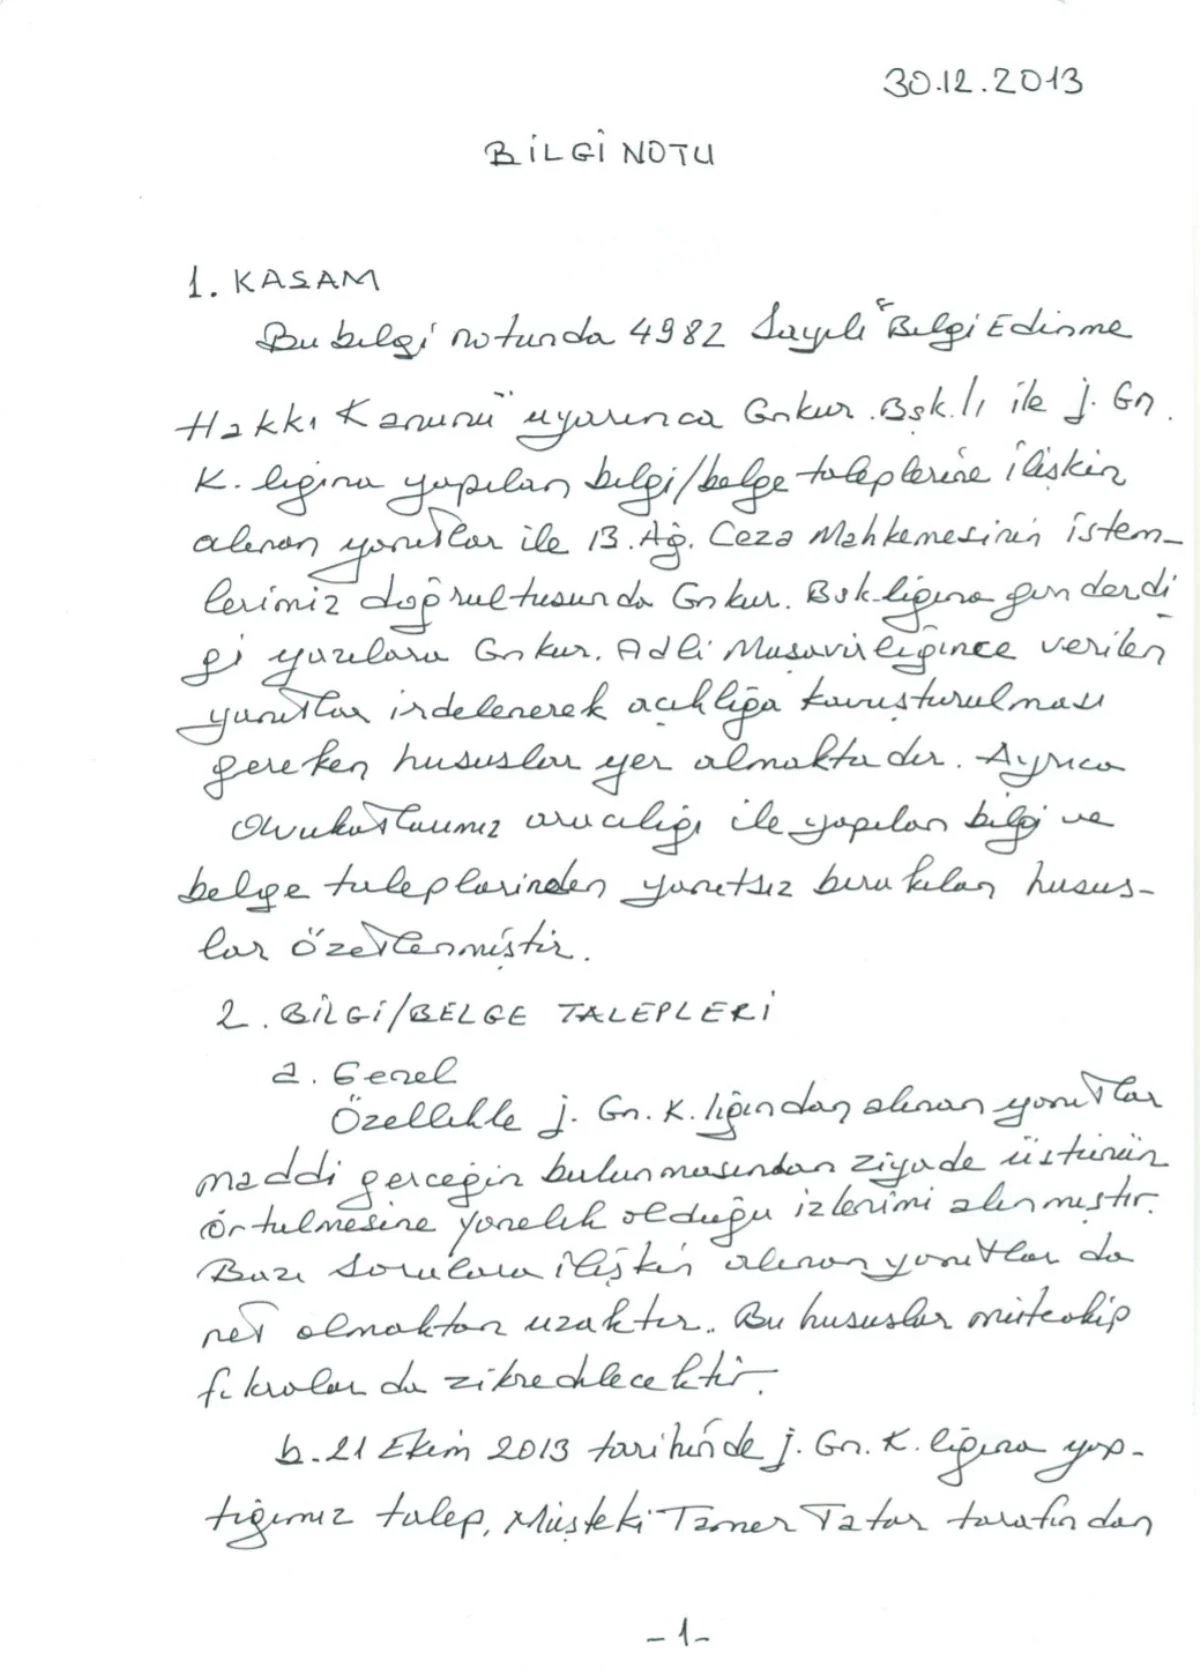 30.12.2013
BİLGİ NOTU
1. KASAM
Bu bilgi notunda 4982 Sayılı "Bilgi Edinme
Hakkı Kanunu" uyarınca Gnkur. Bşk.lı ile j. Gn.
K. lığına yapılan bilgi/belge taleplerine ilişkin
alınan yanıtlar ile 13. Ağ. Ceza Mahkemesinin istem-
lerimiz doğrultusunda Gnkur. Bşk.lığına gönderdi
ği yazılara Gnkur. Adli Müşavirliğince verilen
yanıtlar irdelenerek açıklığa kavuşturulması
gereken hususlar yer almaktadır. Ayrıca
avukatlarımız aracılığı ile yapılan bilgi ve
belge taleplerinden yanıtsız bırakılan husus-
lar özetlenmiştir.
2. BİLGİ/BELGE TALEPLERİ
a. Genel
Özellikle j. Gn. K. lığından alınan yanıtlar
maddi gerçeğin bulunmasından ziyade üstünün
örtülmesine yönelik olduğu izlenimi alınmıştır.
Bazı sorulara ilişkin alınan yanıtlar da
net olmaktan uzaktır. Bu hususlar müteakip
fıkralar da zikredilecektir.
b. 21 Ekim 2013 tarihinde j. Gn. K. lığına yap-
tığımız talep, Müşteki Tamer Tatar tarafından
-1-